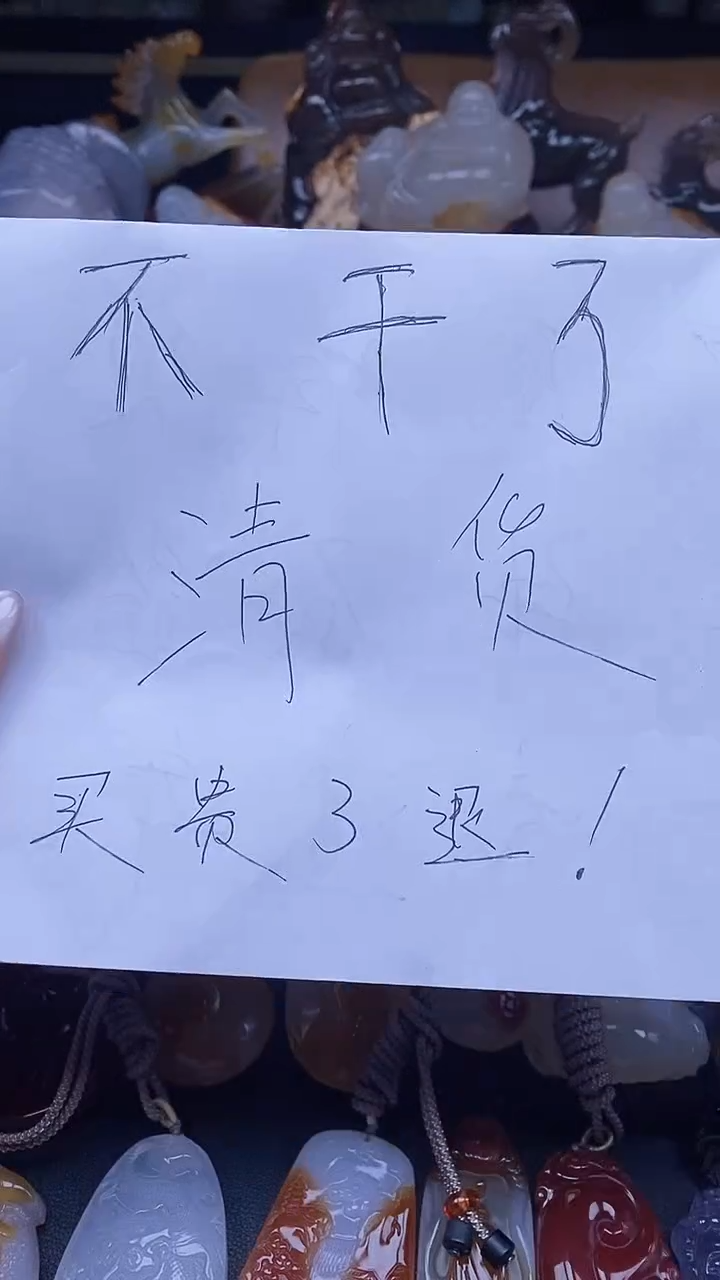 不干了
清货
买贵了退!